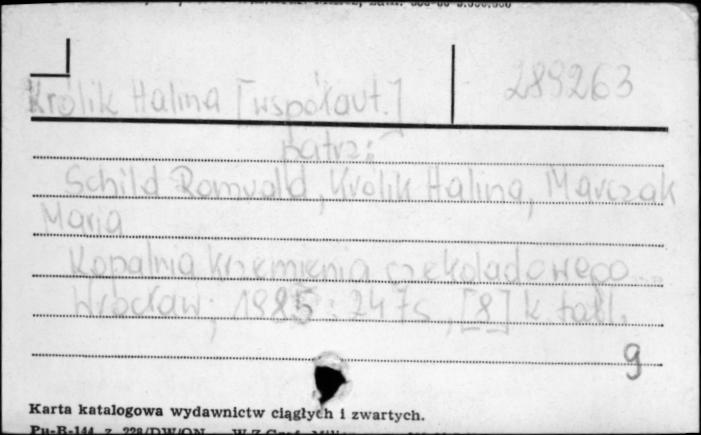 Królik Halina [współaut.]
289263
patrz:
Schild Romuald, Królik Halina, Marczak
Maria
Kopalnia krzemienia czekoladowego...
Wrocław; 1985; 247s, [8] k. tabl.
g
Karta katalogowa wydawnictw ciągłych i zwartych.
Pu-B-144 z. 228/DW/ON